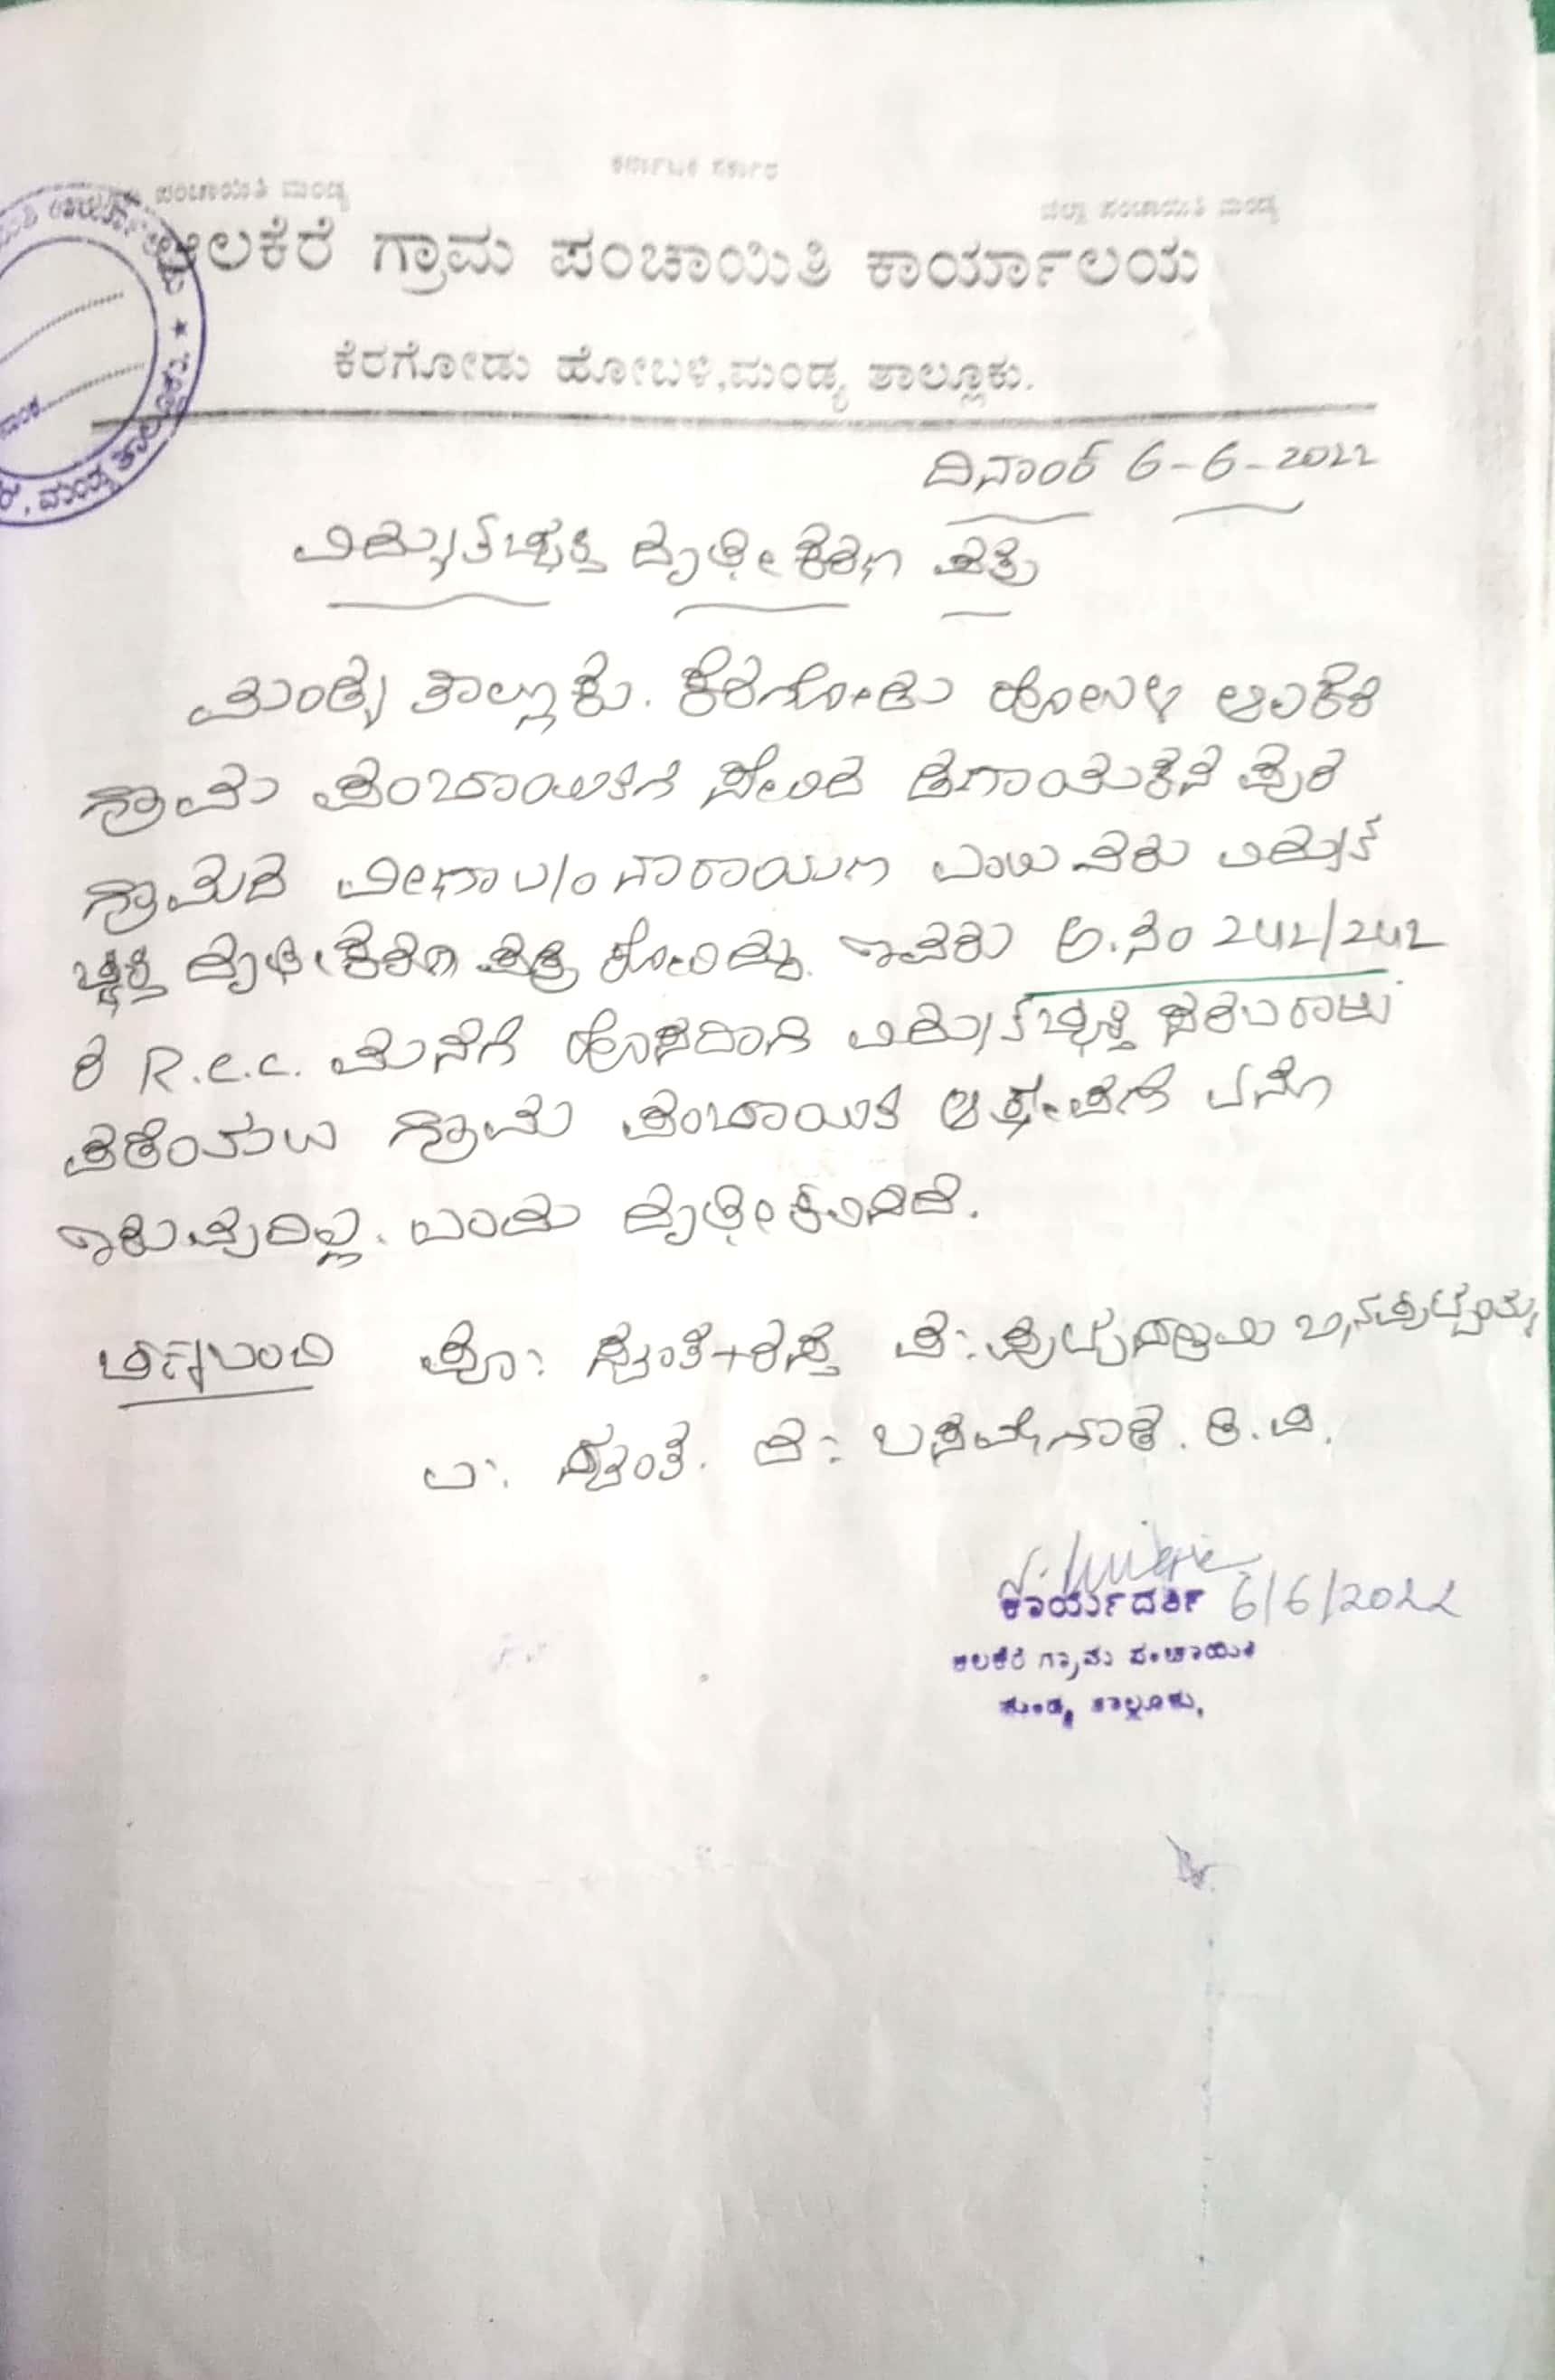 ಕರ್ನಾಟಕ ಸರ್ಕಾರ
ಪಂಚಾಯಿತಿ ಮಂಡ್ಯ ಜಿಲ್ಲಾ ಪಂಚಾಯಿತಿ ಮಂಡ್ಯ
ಆಲಕೆರೆ ಗ್ರಾಮ ಪಂಚಾಯಿತಿ ಕಾರ್ಯಾಲಯ
ಕೆರಗೋಡು ಹೋಬಳಿ,ಮಂಡ್ಯ ತಾಲ್ಲೂಕು.
ದಿನಾಂಕ 6-6-2022
ವಿದ್ಯುತ್‌ಚ್ಛಕ್ತಿ ದೃಢೀಕರಣ ಪತ್ರ
ಮಂಡ್ಯ ತಾಲ್ಲೂಕು. ಕೆರಗೋಡು ಹೋಬಳಿ ಆಲಕೆರೆ
ಗ್ರಾಮ ಪಂಚಾಯಿತಿಗೆ ಸೇರಿದ ಪುರ
ಗ್ರಾಮದ ವೀಣಾ ನಾರಾಯಣ ಎಂಬುವರು ವಿದ್ಯುತ್
ಚ್ಛಕ್ತಿ ದೃಢೀಕರಣ ಪತ್ರ ಕೋರಿದ್ದು. ಇವರು ಅ.ನಂ 242/242
ರ R.C.C. ಮನೆಗೆ ಹೊಸದಾಗಿ ವಿದ್ಯುತ್‌ಚ್ಛಕ್ತಿ ಸರಬರಾಜು
ಪಡೆಯಲು ಗ್ರಾಮ ಪಂಚಾಯಿತಿ ಆಕ್ಷೇಪಣೆ ಏನೂ
ಇರುವುದಿಲ್ಲ. ಎಂದು ದೃಢೀಕರಿಸಿದೆ.
ಚಕ್ಕುಬಂದಿ ಪೂ: ಸ್ವಂತ+ರಸ್ತೆ ಪ:
ಉ: ಸ್ವಂತ. ದ: ಬಸವೇಗೌಡ.
ಕಾರ್ಯದರ್ಶಿ 6/6/2022
ಆಲಕೆರೆ ಗ್ರಾಮ ಪಂಚಾಯಿತಿ
ಮಂಡ್ಯ ತಾಲ್ಲೂಕು,